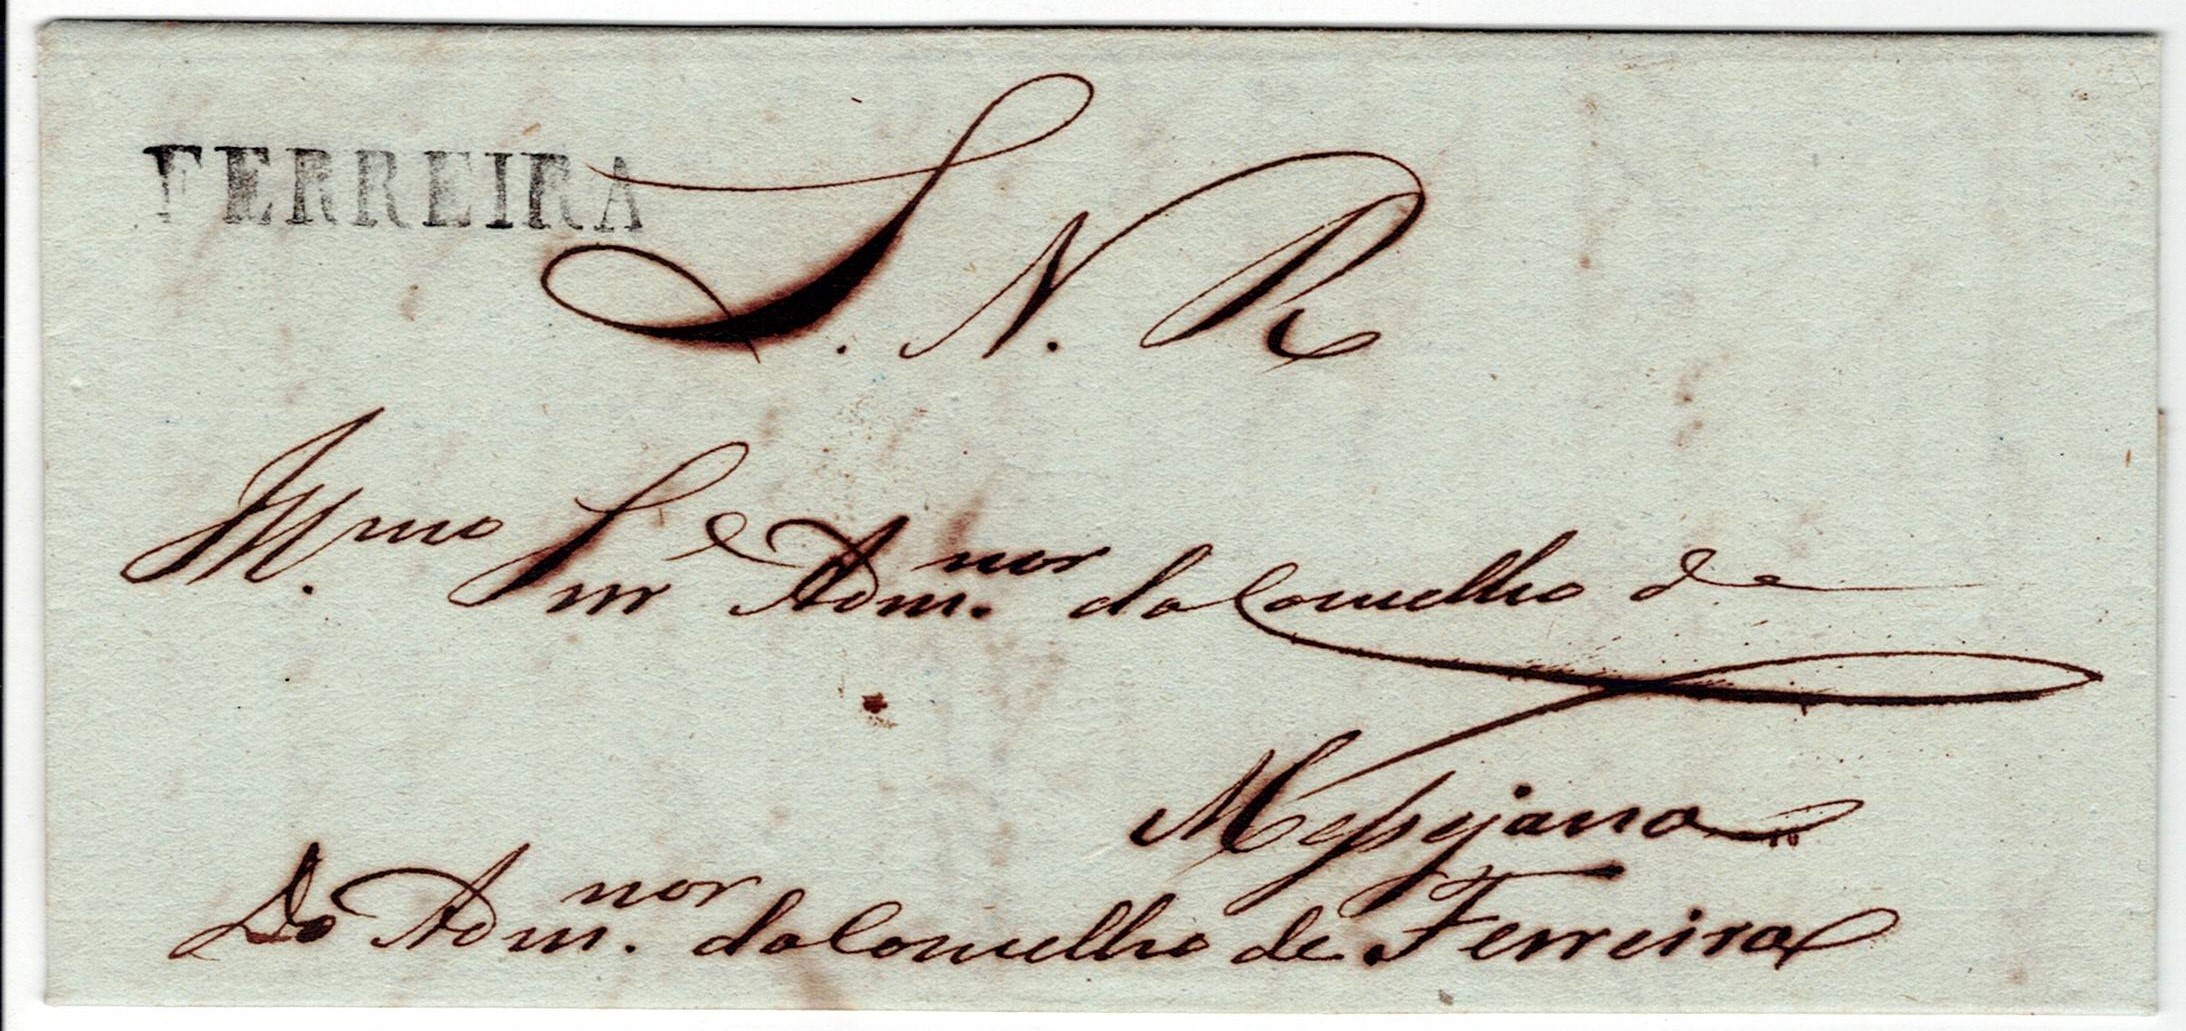 FERREIRA
S. N. R
Illmo. Snr e Adm.nor do Concelho de
Messejana
Do Adm.nor do Concelho de Ferreira